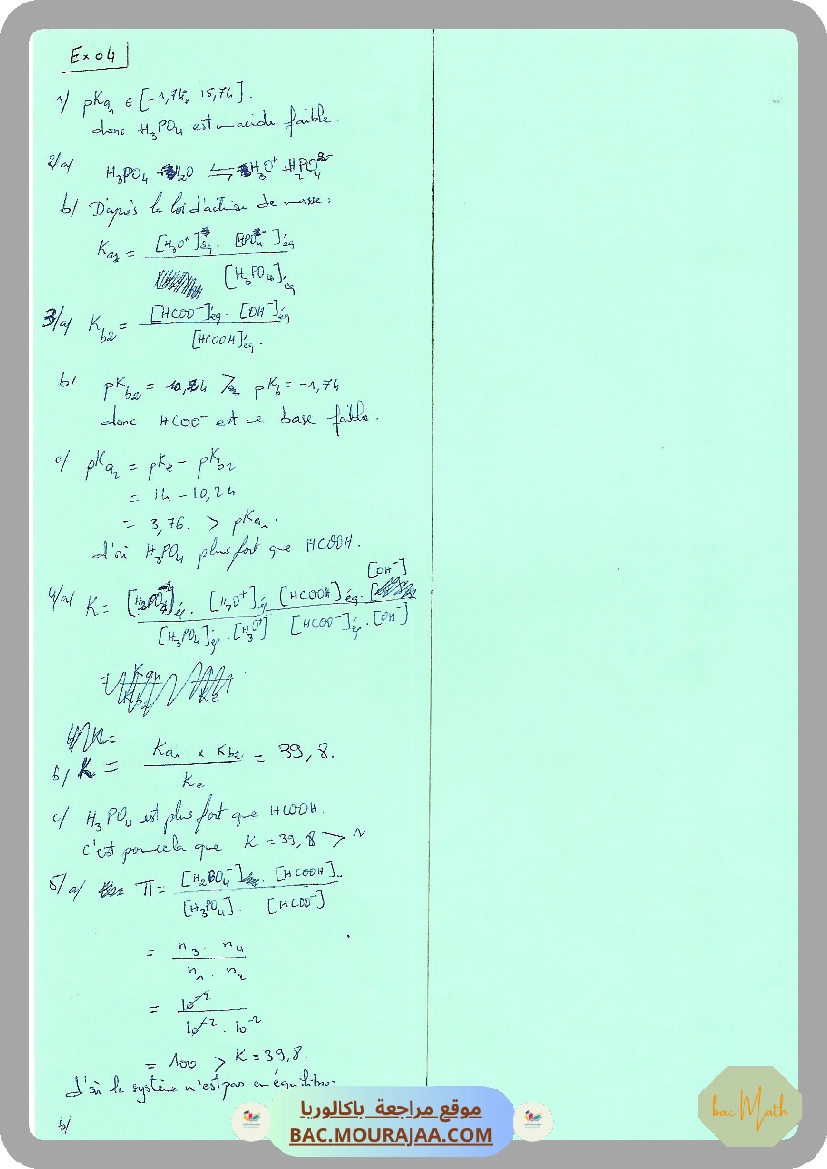 Exo4
1/ pKa₁ ∈ [-1,74, 15,74].
donc H₃PO₄ est un acide faible.
2/a/ H₃PO₄ + H₂O ⇌ H₃O⁺ + H₂PO₄⁻
b/ D'après la loi d'action de masse :
Ka₁ = [H₃O⁺]éq . [H₂PO₄⁻]éq
[H₃PO₄]éq
3/a/ Kb₂ = [HCOO⁻]éq . [OH⁻]éq
[HCOOH]éq.
b/ pKb₂ = 10,24 > pKb = -1,74
donc HCOO⁻ est une base faible.
c/ pKa₂ = pKe - pKb₂
= 14 - 10,24
= 3,76. > pKa₁.
d'où H₃PO₄ plus fort que HCOOH.
4/a/ K = [H₂PO₄⁻]éq . [H₃O⁺]éq [HCOOH]éq . [OH⁻]
[H₃PO₄]éq . [H₃O⁺] [HCOO⁻]éq . [OH⁻]
b/ K = Ka₁ x Kb₂ = 39,8.
Ke
c/ H₃PO₄ est plus fort que HCOOH.
c'est pour cela que K = 39,8 > 1
5/a/ Π = [H₂PO₄⁻] . [HCOOH]
[H₃PO₄] . [HCOO⁻]
= n₃ . n₄
n₁ . n₂
=
10⁻² . 10⁻²
= 100 > K = 39,8.
d'où le système n'est pas en équilibre.
b/
موقع مراجعة باكالوريا
BAC.MOURAJAA.COM
bac Math